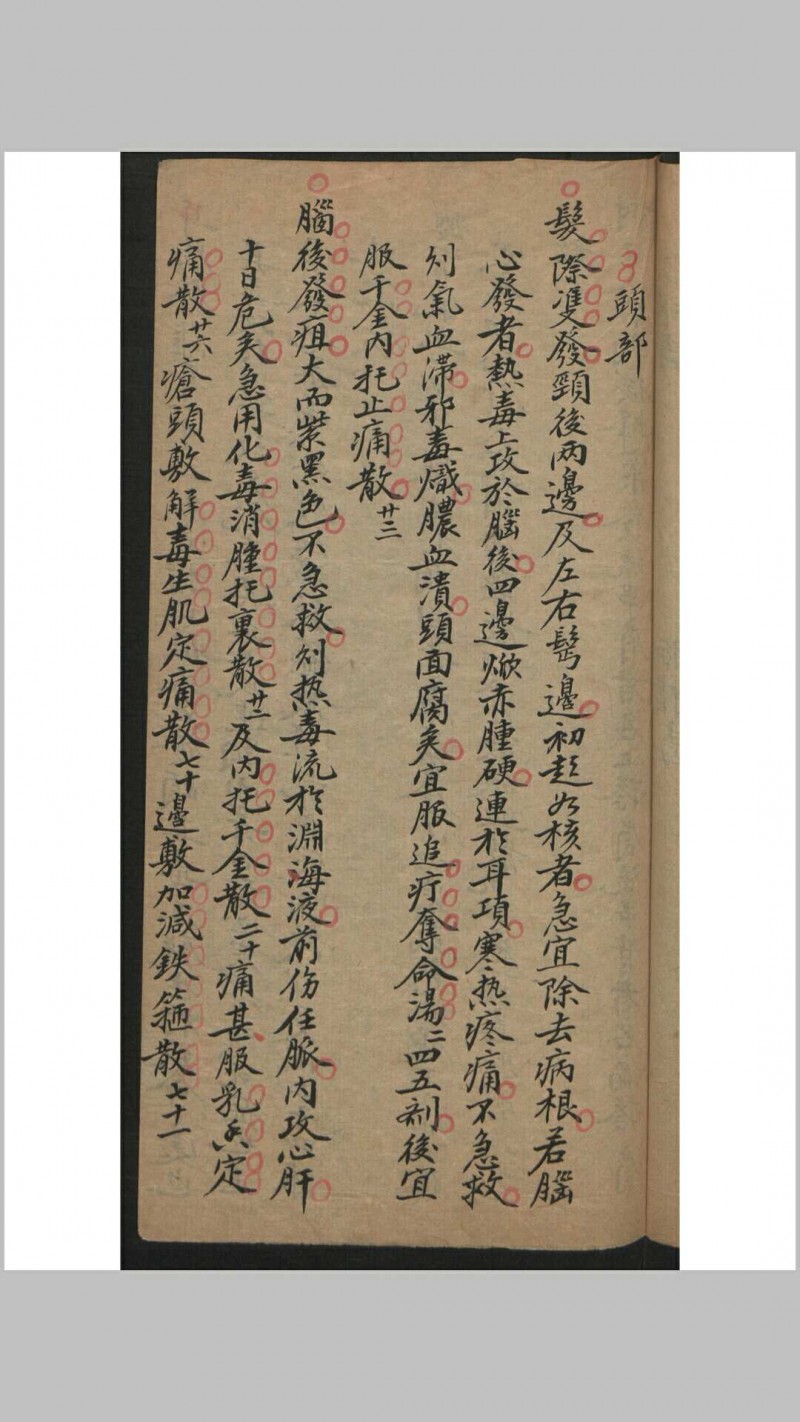 頭部
髮際雙發頸後兩邊及左右髩邊初起如核者急宜除去病根若腦
心發者熱毒上攻於腦後四邊焮赤腫硬連扵耳項寒热疼痛不急救
則氣血滞邪毒熾膿血潰頭面腐矣宜服追疔奪命湯二四五劑後宜
服千金內托止痛散廿三
腦後發疽大而紫黑色不急救則热毒流扵淵海液前伤任脈內攻心肝
十日危矣急用化毒消腫托裏散廿二及內托千金散二十痛甚服乳香定
痛散廿六瘡頭敷解毒生肌定痛散七十邊敷加減鉄箍散七十一